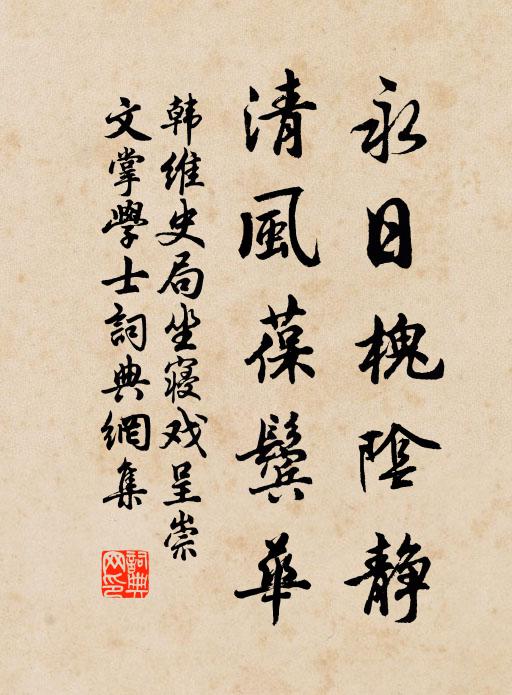 永日槐陰静
清風葆鬓華
韩維史局坐寝戏呈崇
文掌學士詞典網集
詞典网印